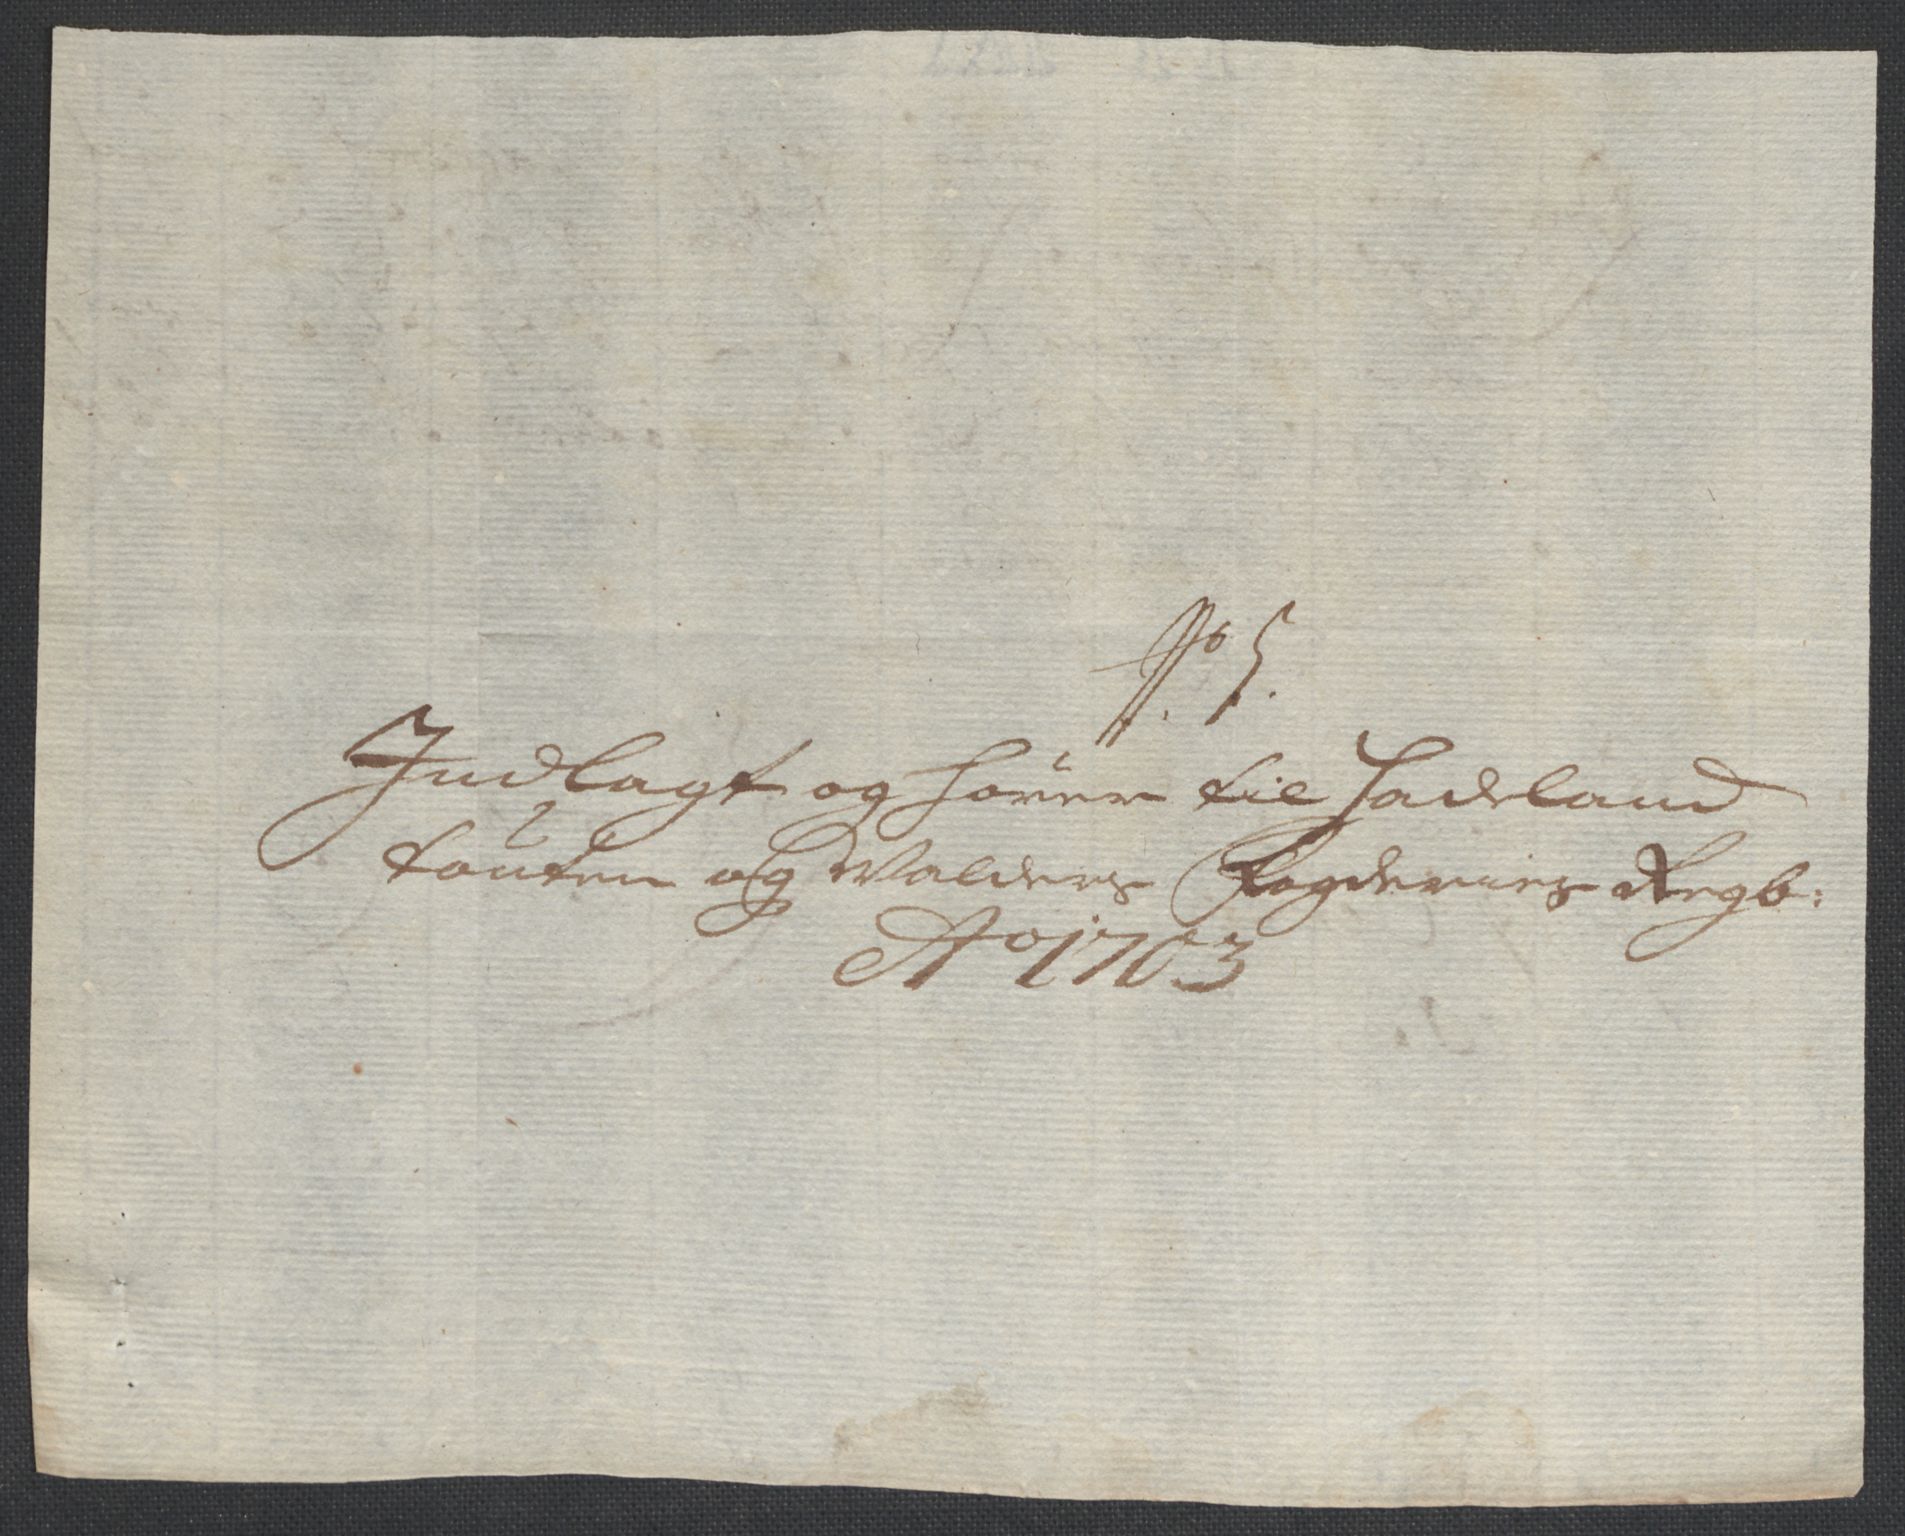 No. 5.
Indlagt og hører til Hadeland
touten og Walders Fogderies Regb:
Ao 1703